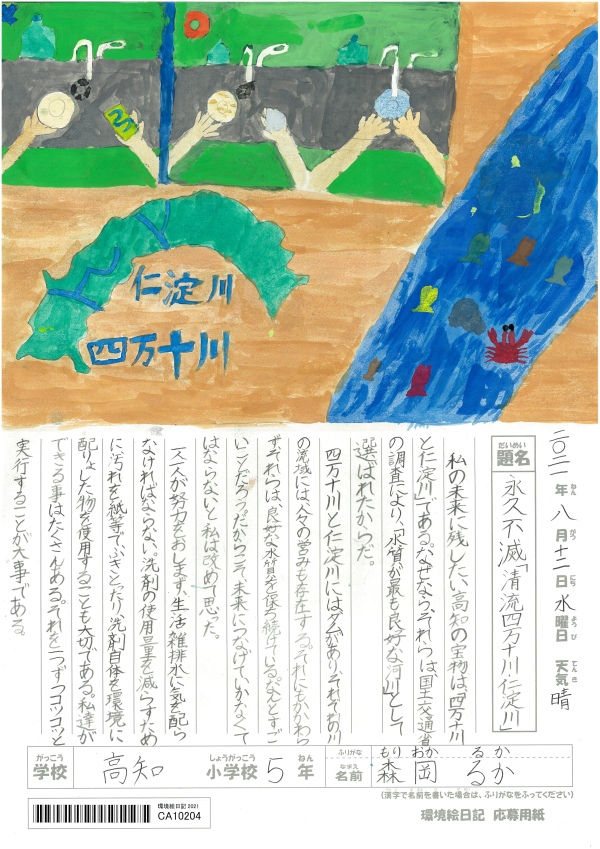 仁淀川
四万十川
二〇二一年八月十一日水曜日 天気晴
題名 永久不滅「清流四万十川・仁淀川」
私の未来に残したい、高知の宝物は、「四万十川
と仁淀川」である。なぜなら、それらは、国土交通省
の調査により、「水質が最も良好な河川」として
選ばれたからだ。
四万十川と仁淀川にはダムがあり、それぞれの川
の流域には、人々の営みも存在する。それにもかかわら
ずそれらは、良好な水質を保ち続けている。なんとすご
いことだろう。だからこそ、未来につなげていかなくて
はならないと私は改めて思った。
一人一人が努力をおしまず、生活雑排水に気を配ら
なければならない。洗剤の使用量を減らすため
に汚れを紙等でふきとったり、洗剤自体を環境に
配りょした物を使用することも大切である。私達が
できる事はたくさんある。それを一つずつコツコツと
実行することが大事である。
がっこう しょうがっこう ねん ふりがな もりおか るか
学校 高知 小学校 5年 名前 森岡 るか
(漢字で名前を書いた場合は、ふりがなをふってください)
環境絵日記 2021
CA10204
環境絵日記 応募用紙